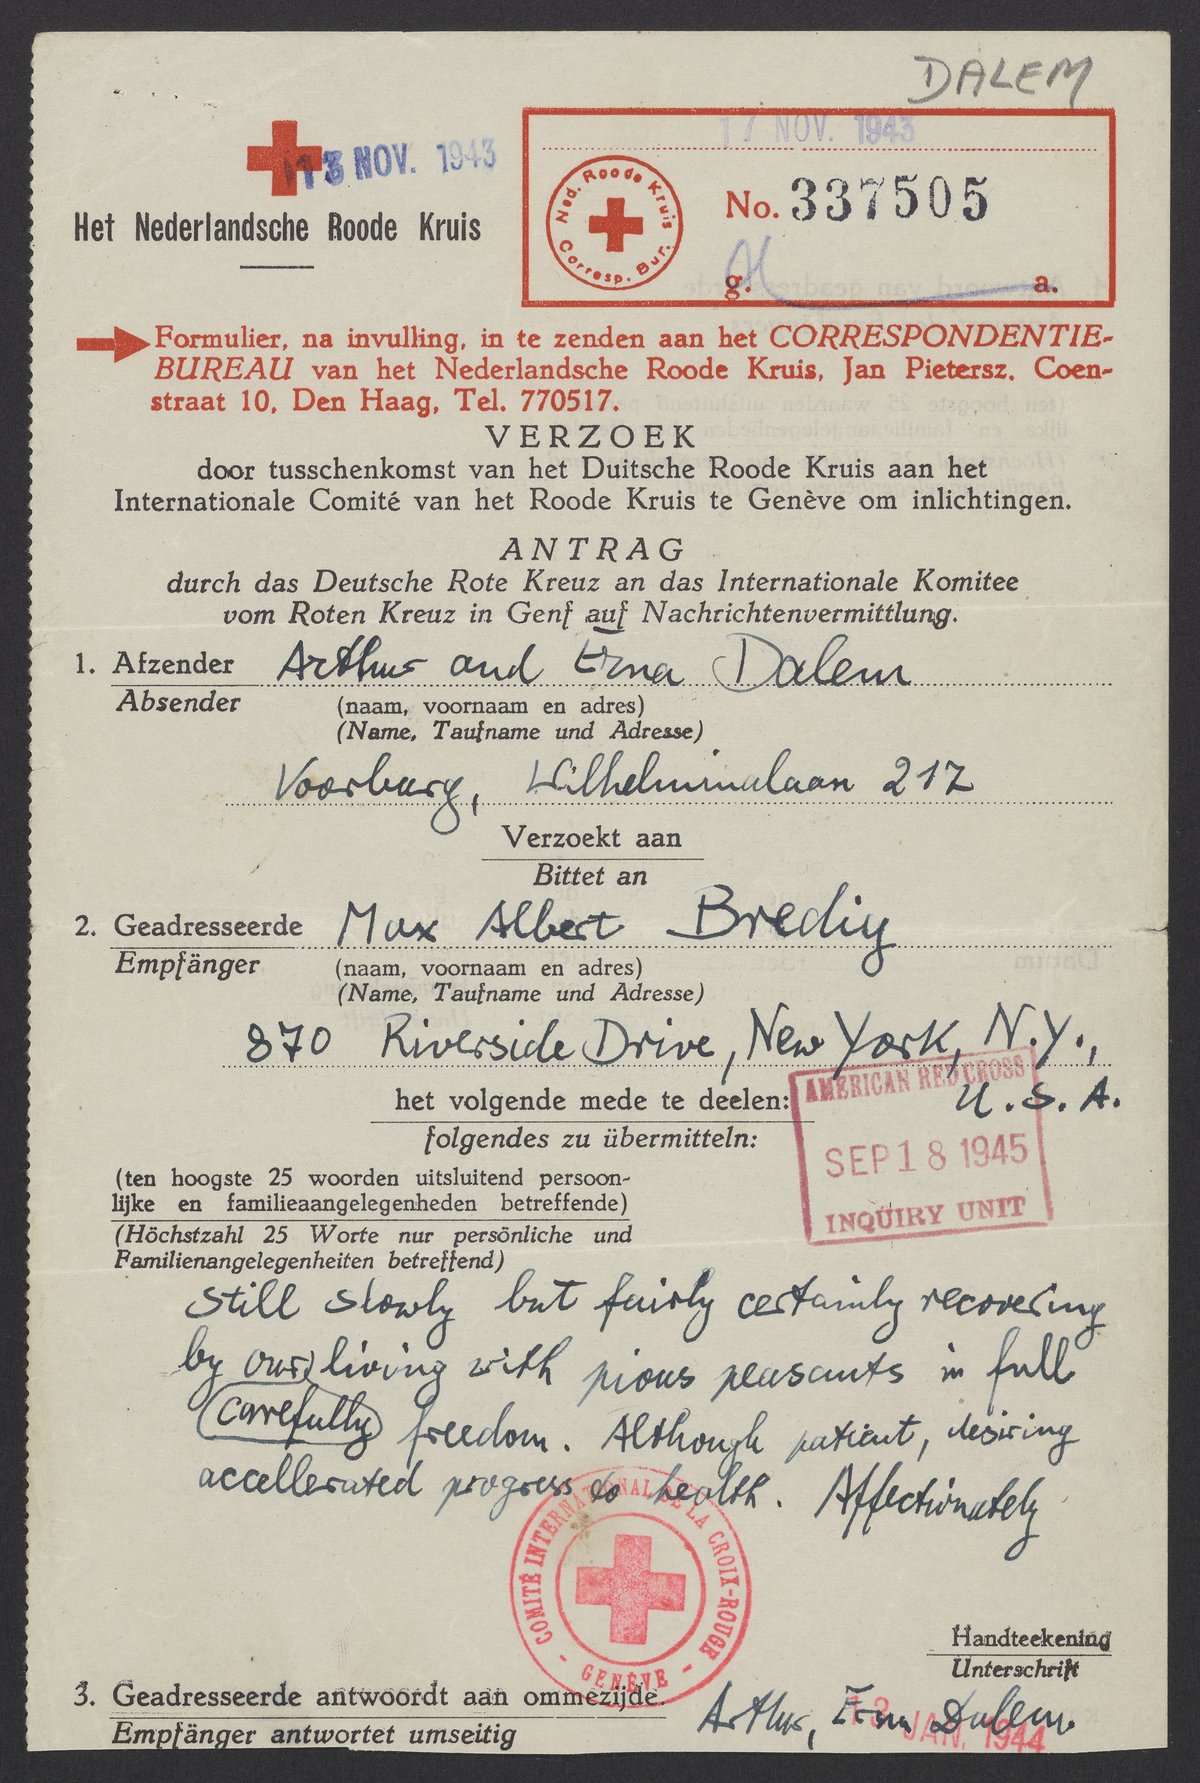 DALEM
13 NOV. 1943
17 NOV. 1943
Het Nederlandsche Roode Kruis
Ned. Roode Kruis
Corresp. Bur.
No. 337505
g. a.
Formulier, na invulling, in te zenden aan het CORRESPONDENTIE-
BUREAU van het Nederlandsche Roode Kruis, Jan Pietersz. Coen-
straat 10, Den Haag, Tel. 770517.
VERZOEK
door tusschenkomst van het Duitsche Roode Kruis aan het
Internationale Comité van het Roode Kruis te Genève om inlichtingen.
ANTRAG
durch das Deutsche Rote Kreuz an das Internationale Komitee
vom Roten Kreuz in Genf auf Nachrichtenvermittlung.
1. Afzender Arthur and Erna Dalem
Absender (naam, voornaam en adres)
(Name, Taufname und Adresse)
Voorburg, Wilhelminalaan 217
Verzoekt aan
Bittet an
2. Geadresseerde Max Albert Bredig
Empfänger (naam, voornaam en adres)
(Name, Taufname und Adresse)
870 Riverside Drive, New York, N.Y.,
U.S.A.
het volgende mede te deelen:
folgendes zu übermitteln:
AMERICAN RED CROSS
SEP 18 1945
INQUIRY UNIT
(ten hoogste 25 woorden uitsluitend persoon-
lijke en familieaangelegenheden betreffende)
(Höchstzahl 25 Worte nur persönliche und
Familienangelegenheiten betreffend)
still slowly but fairly certainly recovering
by our living with pious peasants in full
carefully freedom. Although patient, desiring
accellerated progress to health. Affectionately
COMITÉ INTERNATIONAL DE LA CROIX-ROUGE
- GENÈVE -
Handteekening
Unterschrift
3. Geadresseerde antwoordt aan ommezijde.
Empfänger antwortet umseitig
Arthur, Erna Dalem
13 JAN. 1944